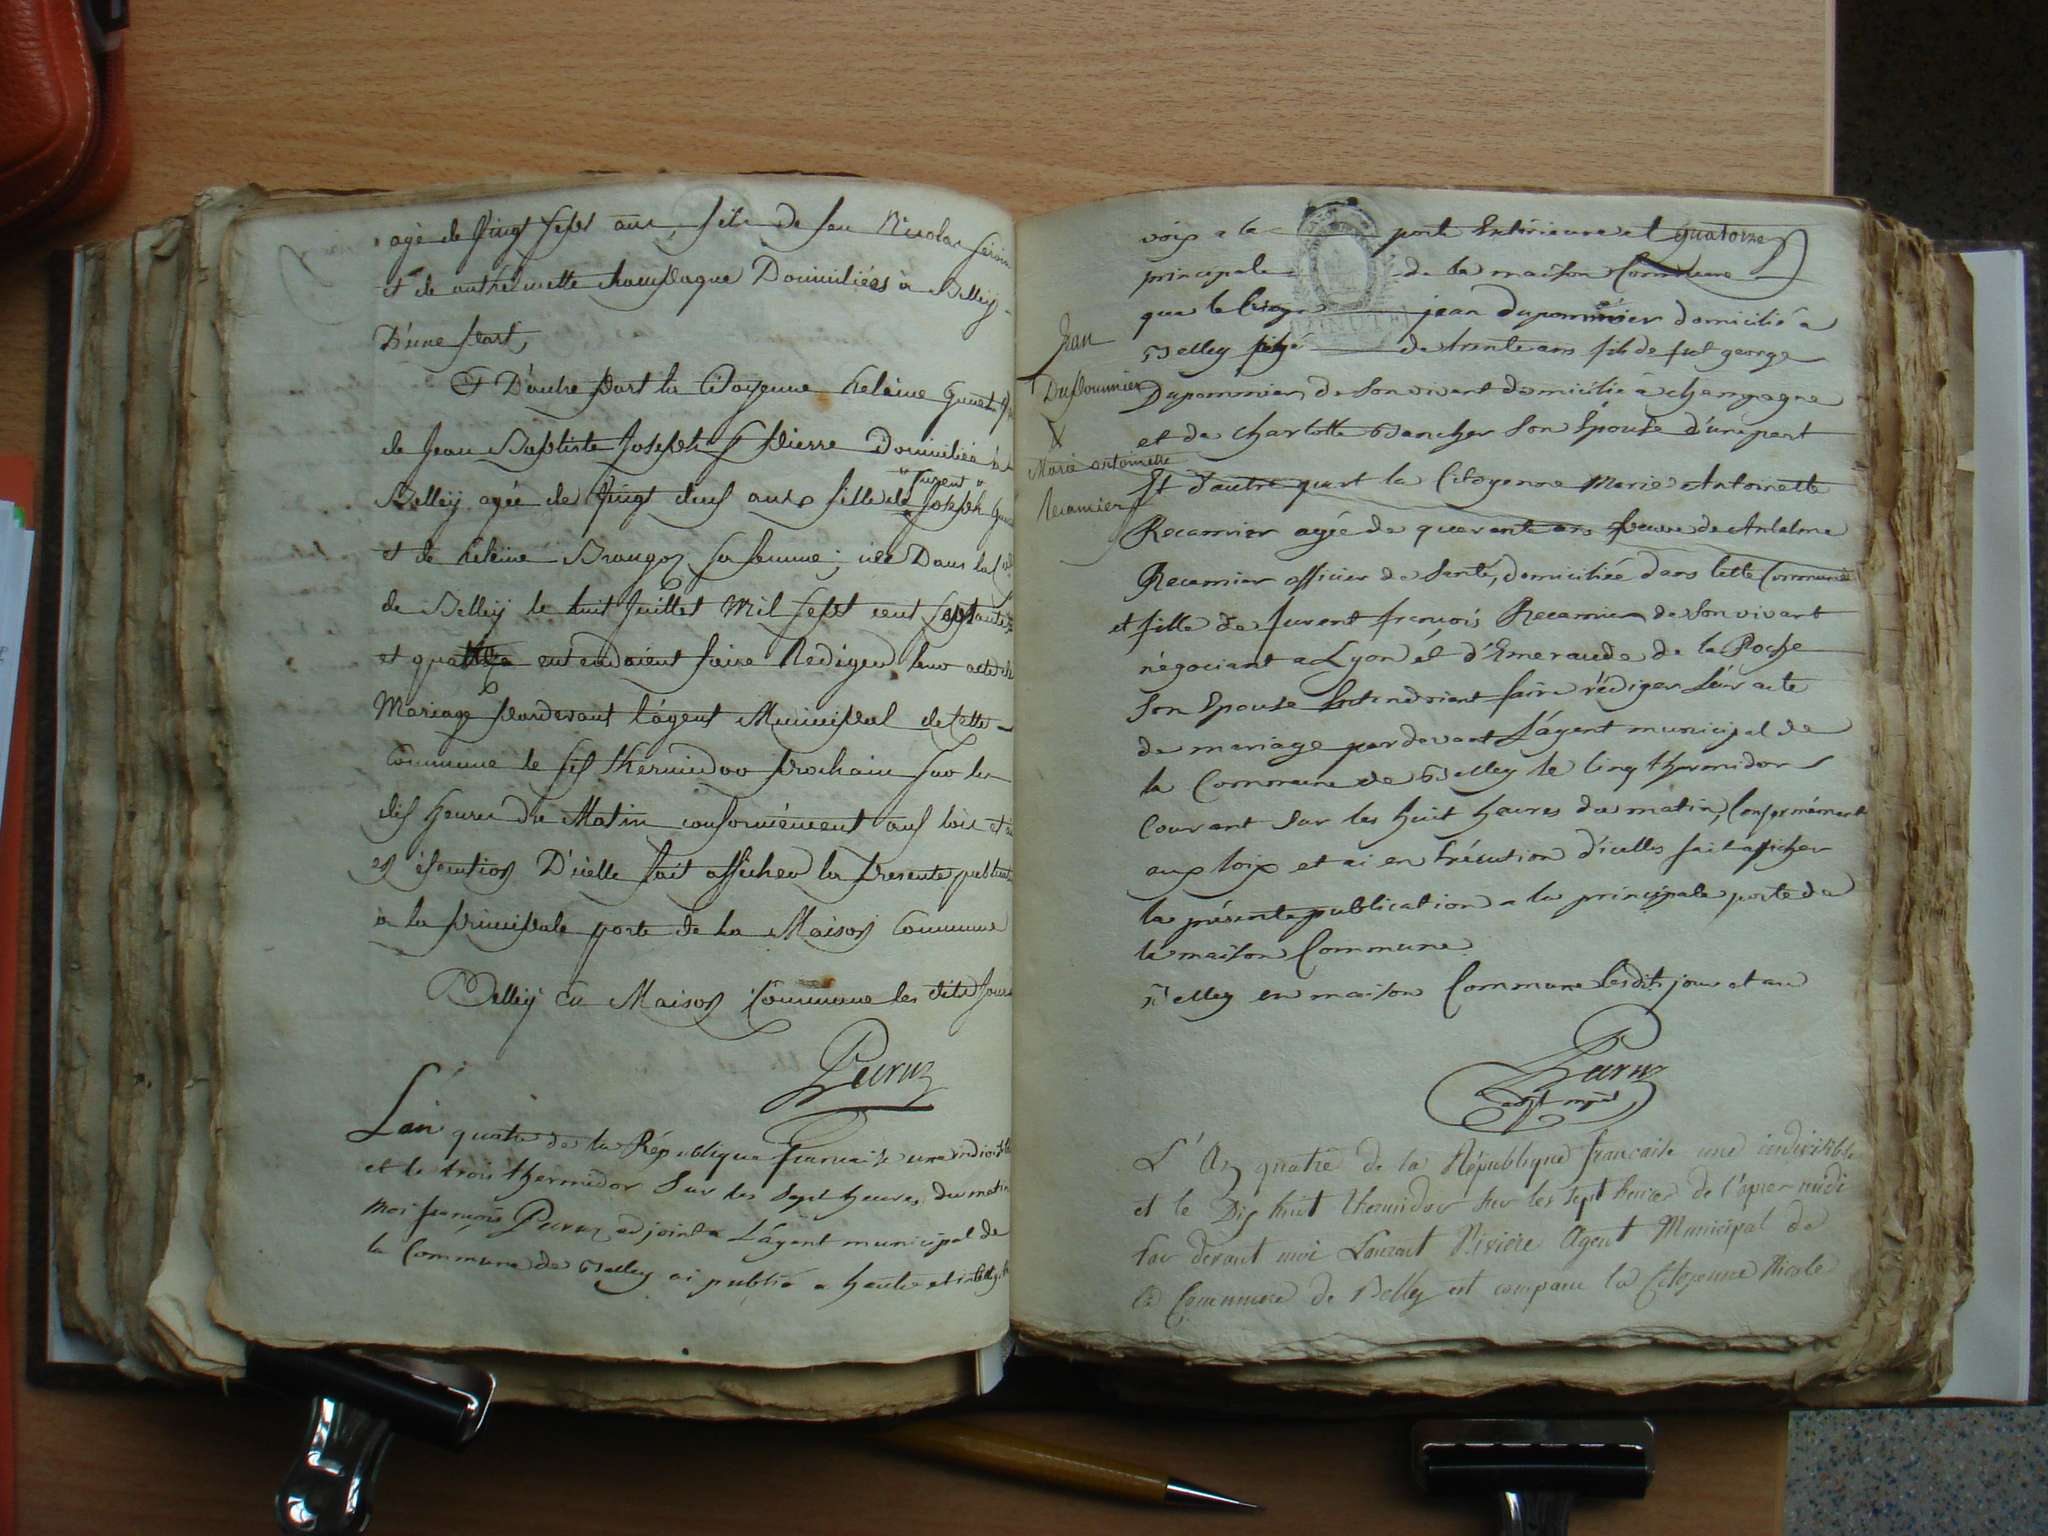 agé de Vingt Sept ans, fils de feu Nicolas
et de anthelmette champagne Domiciliés à Belley
D'une part,
Et D'autre part la Citoyenne heleine
de Jean Baptiste Joseph St pierre Domiciliée à
Belley agée de Vingt deux ans fille de Joseph
furent
et de heleine sa femme; née Dans la
de Belley le huit Juillet Mil Sept cent Septante
et quattre entendaient faire Rediger leur acte de
Mariage pardevant l'agent Municipal de cette
Commune le six thermidor prochain sur les
dix heures du Matin conformément aux loix et ai
en éxecution D'icelle fait afficher la presente publication
à la principale porte de la Maison Commune
Belley en Maison Commune les dits jour
Peruz
L'an quatre de la République francaise une indivisible
et le trois thermidor Sur les Sept heures du matin
moi françois Peruz adjoint a L'agent municipal de
la Commune de Belley ai publié a haute et intelligible
voix a la porte Extérieure et quatorze
principale de la maison Commune
que le Citoyen jean dupommier domicilié a
Belley de trente ans fils de fut george
Jean
Dupommier
&
Marie antoinette
Recamier
Dupommier de Son vivant domicilié a champagne
et de Charlotte Son Epouse d'une part
Et d'autre part la Citoyenne Marie Antoinette
Recamier agée de quarante ans veuve de Antelme
Recamier officier de Santé, domiciliée dans Cette Commune
et fille de furent françois Recamier de Son vivant
négociant a Lyon et d'Emeraude de la Roche
Son Epouse Entendoient faire rédiger Leur acte
de mariage par devant L'agent municipal de
la Commune de Belley le Cinq thermidor
Courant Sur les huit heures du matin, Conformément
aux loix et ai en Exécution d'icelles fait afficher
la présente publication a la principale porte de
la maison Commune
Belley en maison Commune lesdits jour et an
Peruz
adjt
L'An quatre de la République francaise une indivisible
et le Dix huit thermidor sur les sept heures de l'après midi
Par devant moi Laurent Riviere Agent Municipal de
la Commune de Belley est comparu la Citoyenne Nicole